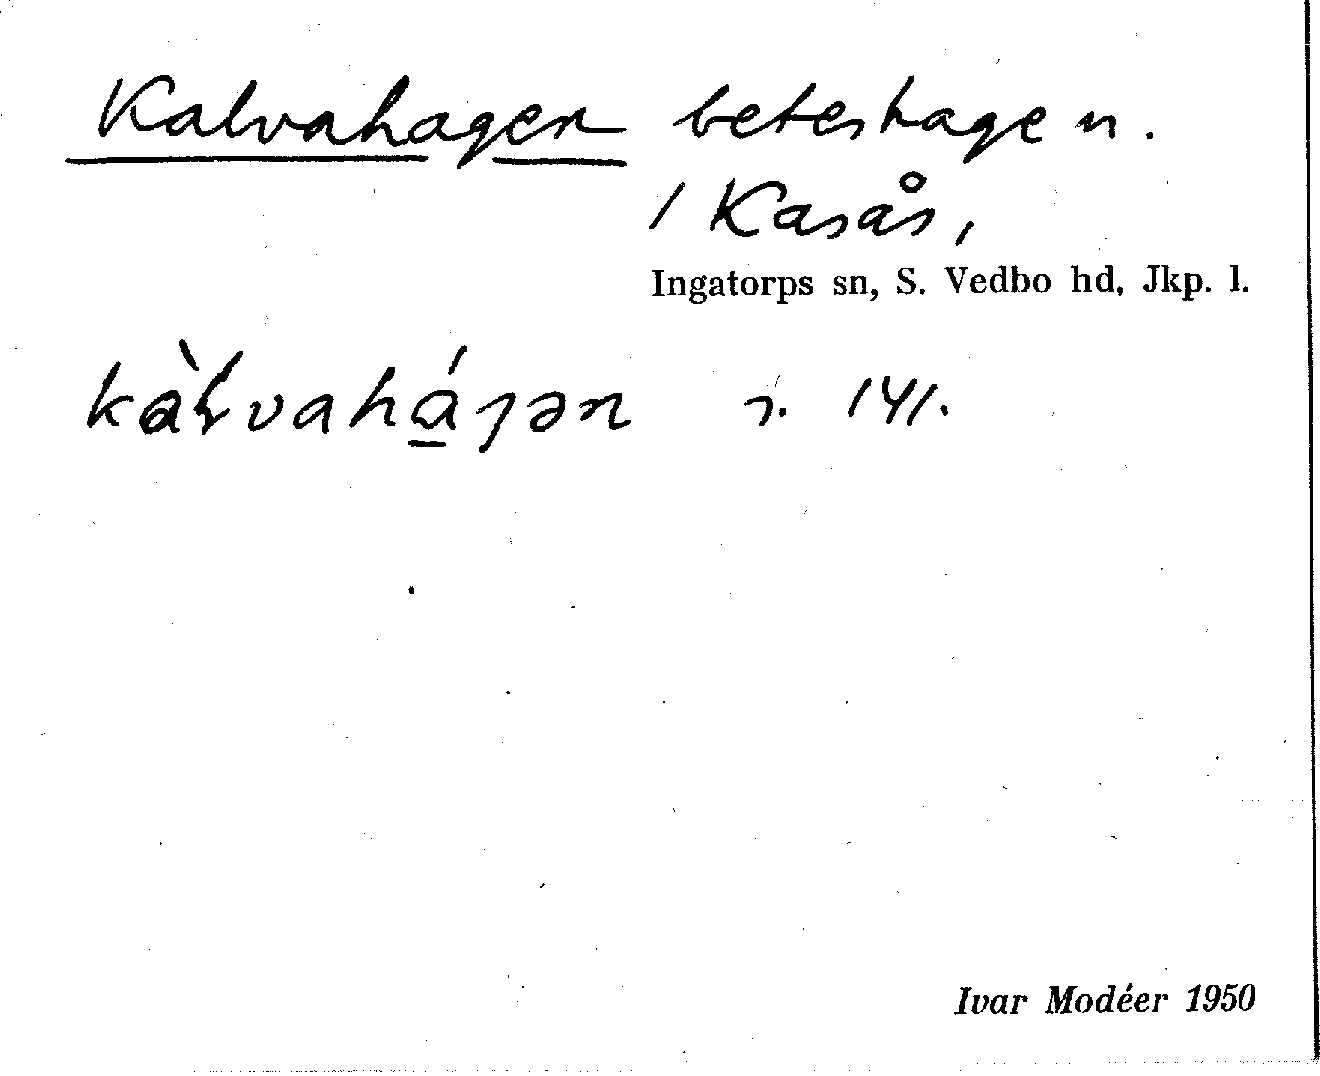 Kalvahagen beteshage n.
/ Kasås,
Ingatorps sn, S. Vedbo hd, Jkp. l.
kàlvahájən s. 141.
Ivar Modéer 1950